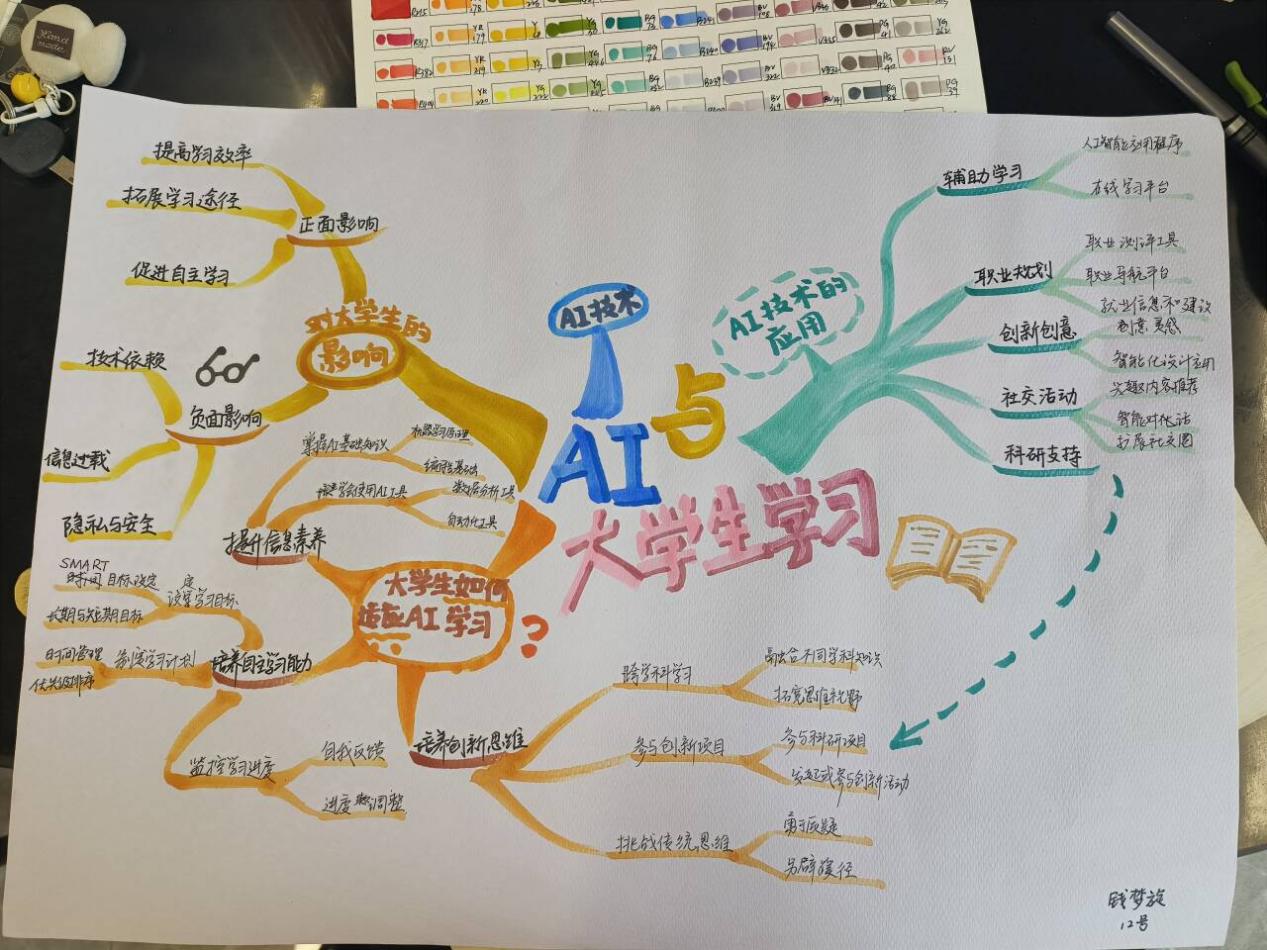 Hand
made
提高学习效率
拓展学习途径
促进自主学习
正面影响
对大学生的
影响
技术依赖
信息过载
隐私与安全
负面影响
AI技术
AI
与
大学生学习
AI技术的
应用
辅助学习
人工智能应用程序
在线学习平台
职业规划
职业测评工具
职业导航平台
就业信息和建议
创新创意
创意灵感
智能化设计应用
社交活动
兴趣内容推荐
智能对化话
扩展社交圈
科研支持
大学生如何
适应AI学习
?
提升信息素养
掌握AI基础知识
机器学习原理
编程基础
学会使用AI工具
数据分析工具
自动化工具
培养自主学习能力
设定学习目标
SMART
目标设定
长期与短期目标
制定学习计划
时间管理
优先级排序
监控学习进度
自我反馈
进度调整
培养创新思维
跨学科学习
融合不同学科知识
拓宽思维视野
参与创新项目
参与科研项目
发起或参与创新活动
挑战传统思维
勇于质疑
另辟蹊径
钱梦旋
12号